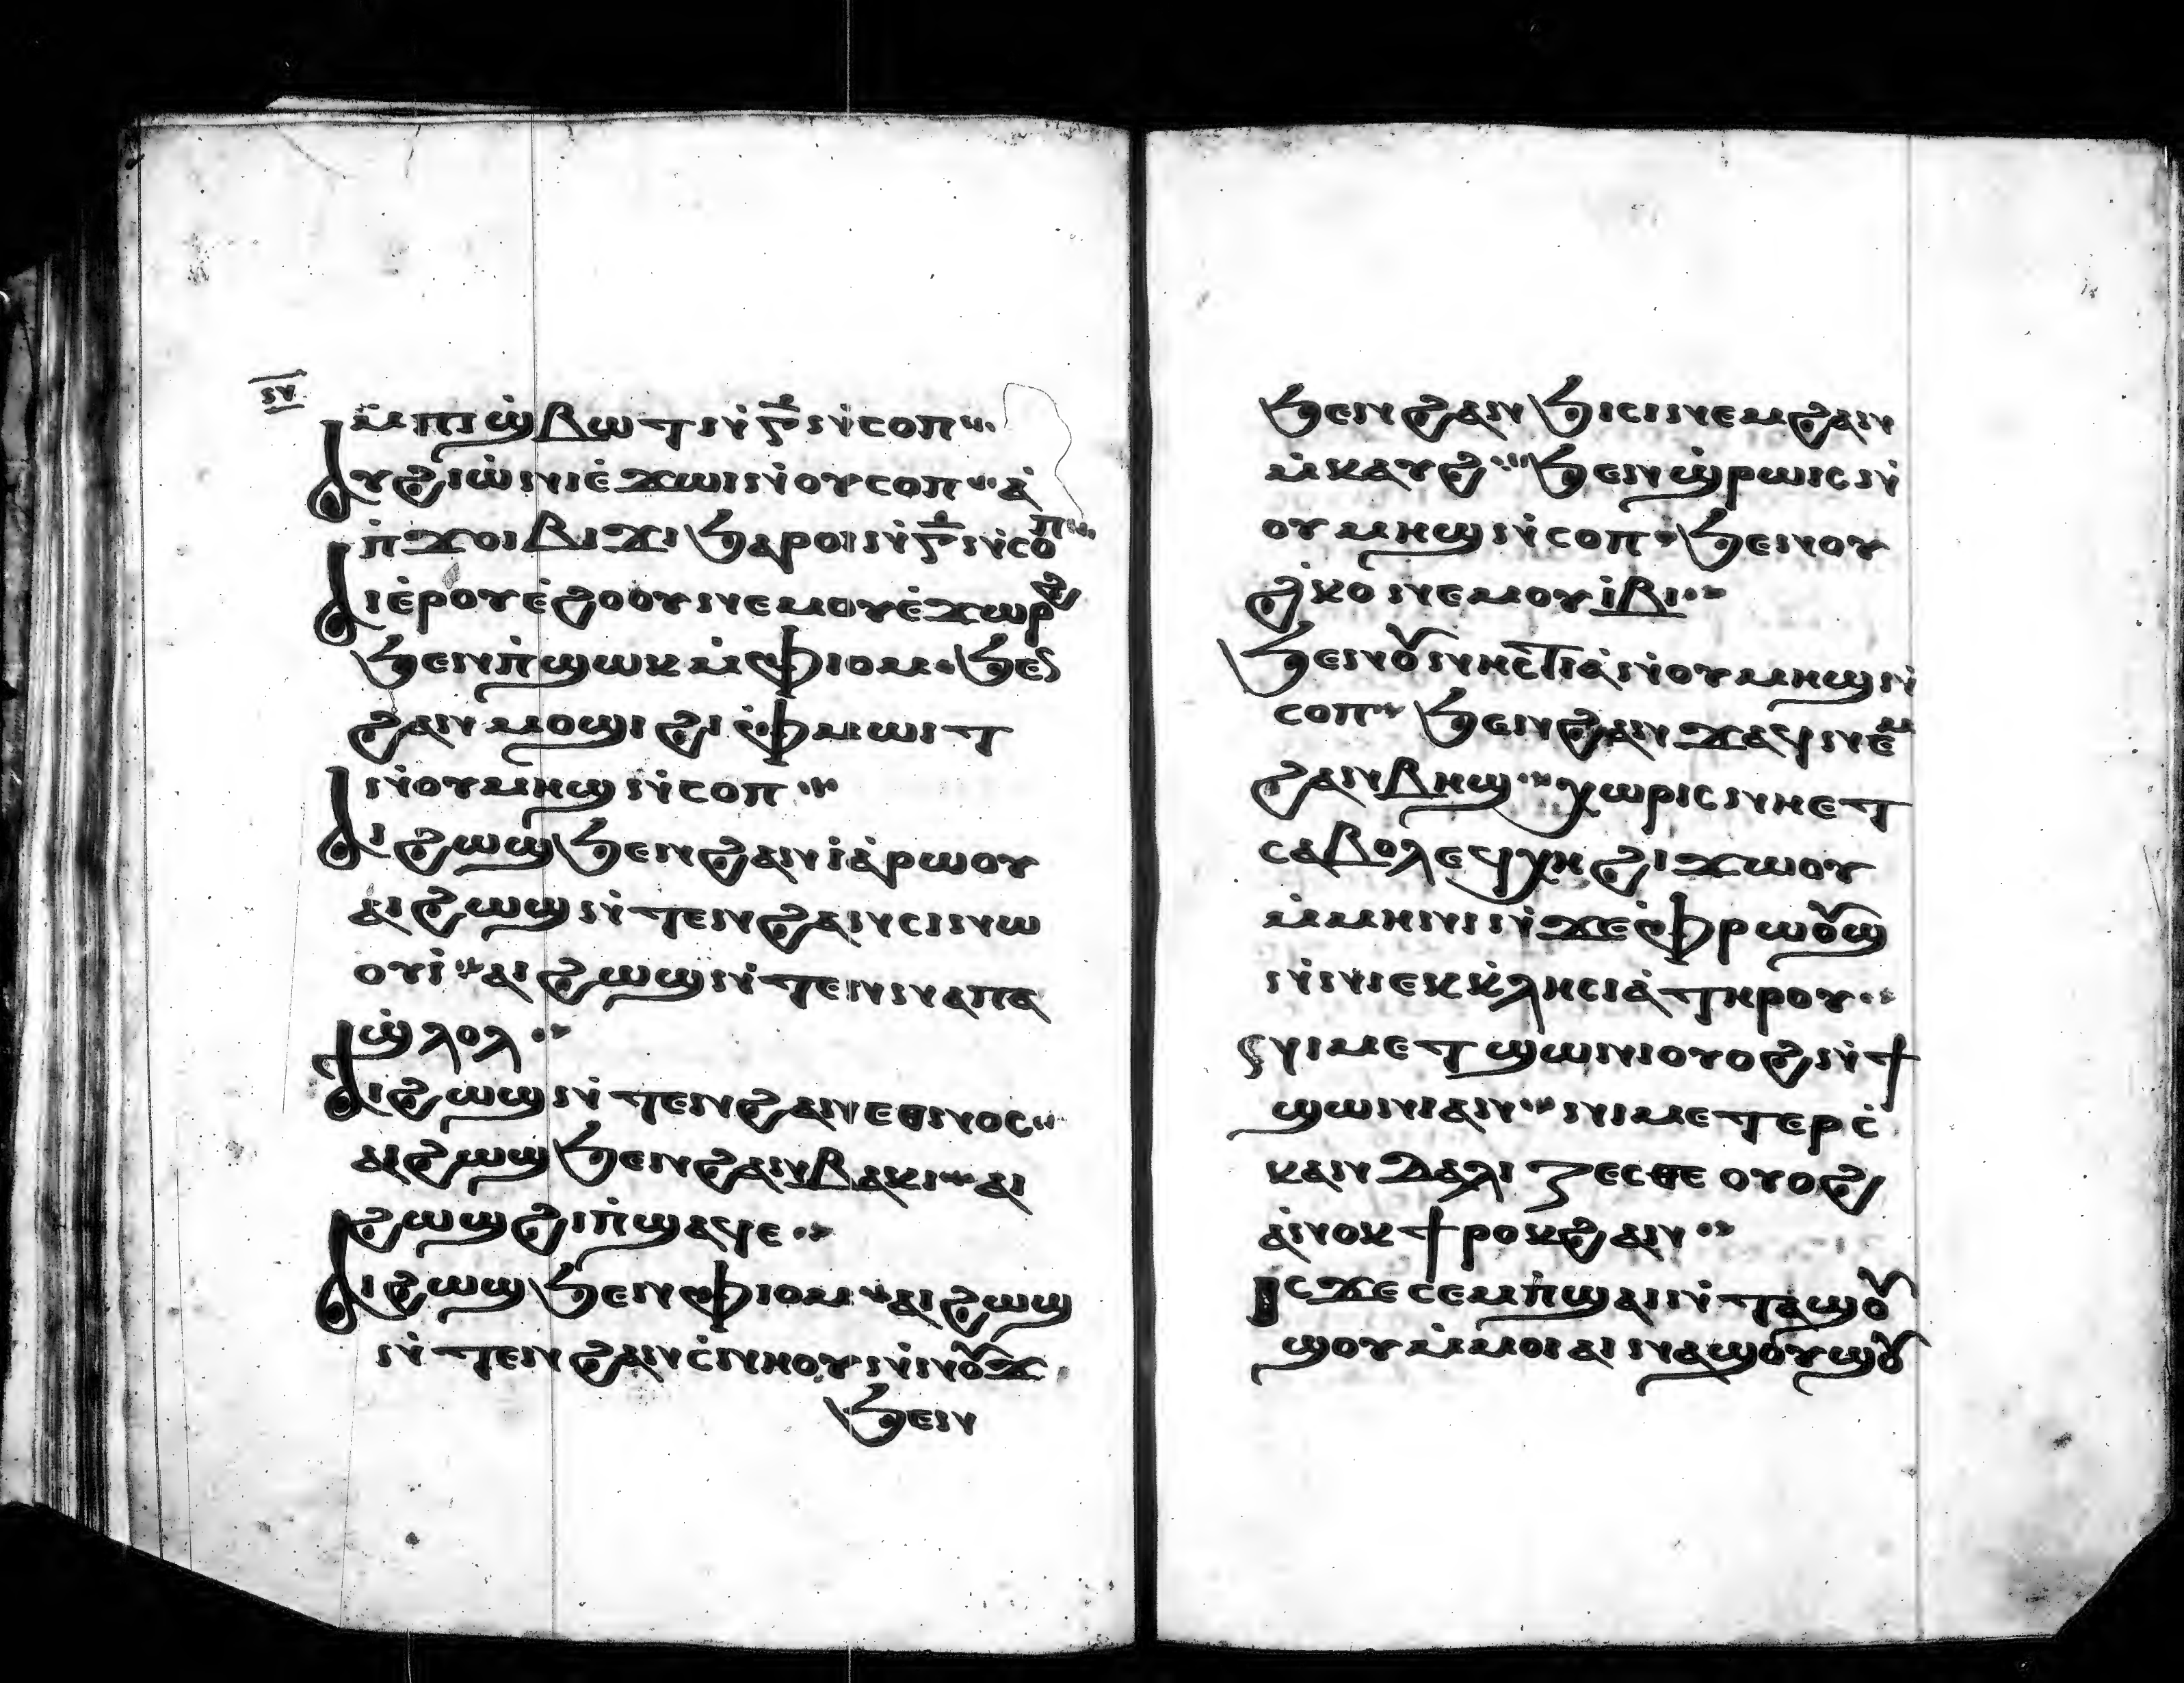 ⲛ̅
ⲙ̀ⲡⲓϣ̀ⲃⲱⲧ ⲛ̀ⲅ̅ ⲛ̀ⲥⲟⲡ
ⲁⲩϩⲓⲱ̀ⲛⲓ ⲉ̀ϫⲱⲓ ⲛ̀ⲟⲩⲥⲟⲡ ⲁ̀
ⲡ̀ϫⲟⲓ ⲃⲓϫⲓ ϧⲁⲣⲟⲓ ⲛ̀ⲅ̅ ⲛ̀ⲥⲟⲡ
ⲁⲓⲉ̀ⲣ ⲟⲩⲉ̀ϩⲟⲟⲩ ⲛⲉⲙ ⲟⲩⲉ̀ϫⲱⲣϩ
ϧⲉⲛ ⲡ̀ϣⲱⲕ ⲙ̀ⲫⲓⲟⲙ ϧⲉⲛ
ϩⲁⲛⲙⲟϣⲓ ϩⲓ ⲫ̀ⲙⲱⲓⲧ
ⲛ̀ⲟⲩⲙⲏϣ ⲛ̀ⲥⲟⲡ
ⲁⲓϩⲱϣ ϧⲉⲛ ϩⲁⲛⲓ̀ⲁ̀ⲣⲱⲟⲩ
ⲁⲓϩⲱϣ ⲛ̀ⲧⲉⲛ ϩⲁⲛⲥⲓⲛⲱ
ⲟⲩⲓ̀ ⲁⲓϩⲱϣ ⲛ̀ⲧⲉⲛ ⲛⲁⲡⲁ
ϣ̀ⲗⲟⲗ
ⲁⲓϩⲱϣ ⲛ̀ⲧⲉⲛ ϩⲁⲛⲉⲑⲛⲟⲥ
ⲁⲓϩⲱϣ ϧⲉⲛ ϩⲁⲛⲃⲁⲕⲓ ⲁⲓ
ϩⲱϣ ϩⲓ ⲡ̀ϣⲁϥⲉ
ⲁⲓϩⲱϣ ϧⲉⲛ ⲫⲓⲟⲙ ⲁⲓϩⲱϣ
ⲛ̀ⲧⲉⲛ ϩⲁⲛⲥ̀ⲛⲏⲟⲩ ⲛ̀ⲛⲟⲩϫ
ϧⲉⲛ
ϧⲉⲛ ϩⲁⲛϧⲓⲥⲓ ⲛⲉⲙ ϩⲁⲛ
ⲙ̀ⲕⲁⲩϩ ϧⲉⲛ ϣ̀ⲣⲱⲓⲥ ⲛ̀
ⲟⲩⲙⲏϣ ⲛ̀ⲥⲟⲡ ϧⲉⲛ ⲟⲩ
ϩ̀ⲕⲟ ⲛⲉⲙ ⲟⲩⲓ̀ⲃⲓ
ϧⲉⲛ ⲟⲩⲛⲏⲥⲧⲓⲁ̀ ⲛ̀ⲟⲩⲙⲏϣ ⲛ̀
ⲥⲟⲡ ϧⲉⲛ ϩⲁⲛϫⲁϥ ⲛⲉⲙ
ϩⲁⲛⲃⲏϣ ⲭⲱⲣⲓⲥ ⲛⲏⲉⲧ
ⲥⲁⲃⲟⲗ ⲉϥⲭⲏ ϩⲓϫⲱⲟⲩ
ⲙ̀ⲙⲏⲛⲓ ⲛ̀ϫⲉ ⲫ̀ⲣⲱⲟⲩϣ
ⲛ̀ⲛⲓⲉⲕⲕ̀ⲗⲏⲥⲓⲁ̀ ⲧⲏⲣⲟⲩ
ⲛⲓⲙ ⲉⲧϣⲱⲛⲓ ⲟⲩⲟϩ ⲛ̀ϯ
ϣⲱⲛⲓ ⲁⲛ ⲛⲓⲙ ⲉⲧⲉⲣⲥ̀
ⲕⲁⲛⲇⲁⲗⲓⲍⲉⲥⲑⲉ ⲟⲩⲟϩ
ⲁ̀ⲛⲟⲕ ϯⲣⲟⲕϩ ⲁⲛ
ⲓⲥϫⲉ ⲥⲉⲙ̀ⲡϣⲁ ⲛ̀ⲧⲁϣⲟⲩ
ϣⲟⲩ ⲙ̀ⲙⲟⲓ ⲁⲓⲛⲁϣⲟⲩϣⲟⲩ